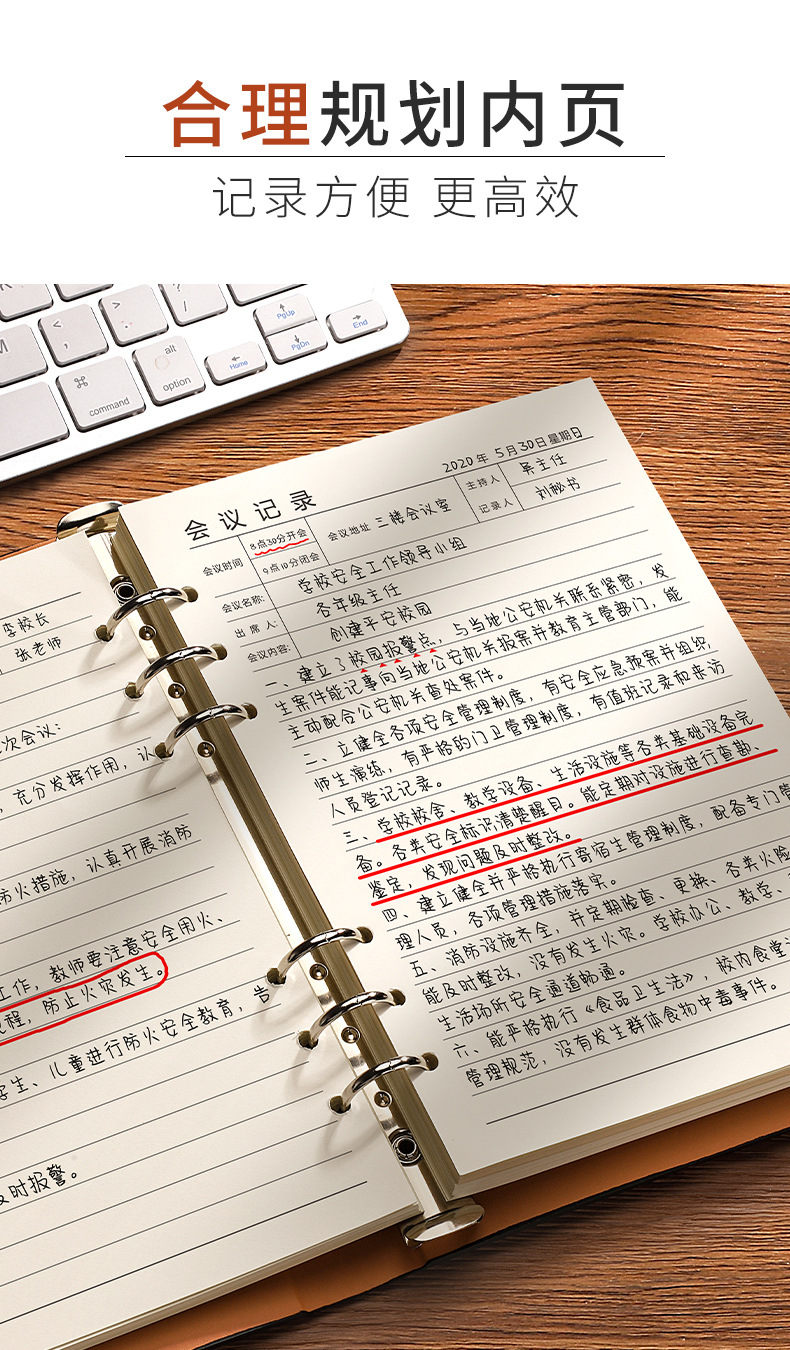 合理规划内页
记录方便 更高效
M
<
,
>
.
?
/
⌘
command
alt
option
PgUp
PgDn
Home
End
李校长
张老师
次会议:
，充分发挥作用，认
防火措施，认真开展消防
工作，教师要注意安全用火、
程，防止火灾发生。
学生、儿童进行防火安全教育，告
及时报警。
会议记录
2020 年 5月30日 星期日
会议时间 8点30分开会 9点10分闭会 会议地址 三楼会议室 主持人 吴主任 记录人 刘秘书
会议名称: 学校安全工作领导小组
出 席 人: 各年级主任
会议内容: 创建平安校园
一、建立了校园报警点，与当地公安机关联系紧密，发
生案件能记事向当地公安机关报案并教育主管部门，能
主动配合公安机关查处案件。
二、立健全各项安全管理制度，有安全应急预案并组织
师生演练，有严格的门卫管理制度，有值班记录和来访
人员登记记录。
三、学校校舍、教学设备、生活设施等各类基础设备完
备。各类安全标识清楚醒目。能定期对设施进行查勘、
鉴定，发现问题及时整改。
四、建立健全并严格执行寄宿生管理制度，配备专门管
理人员，各项管理措施落实。
五、消防设施齐全，并定期检查、更换、各类火险
能及时整改，没有发生火灾。学校办公、教学、
生活场所安全通道畅通。
六、能严格执行《食品卫生法》，校内食堂
管理规范，没有发生群体食物中毒事件。